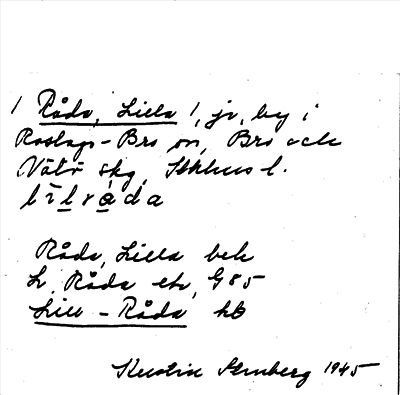 / Råda, Lilla /, jr, by i
Roslags-Bro sn, Bro och
Vätö skg, Sthlms l.
līlråda
Råda, Lilla bek
L. Råda ek, G85
Lill-Råda kb
Kerstin Stenberg 1945